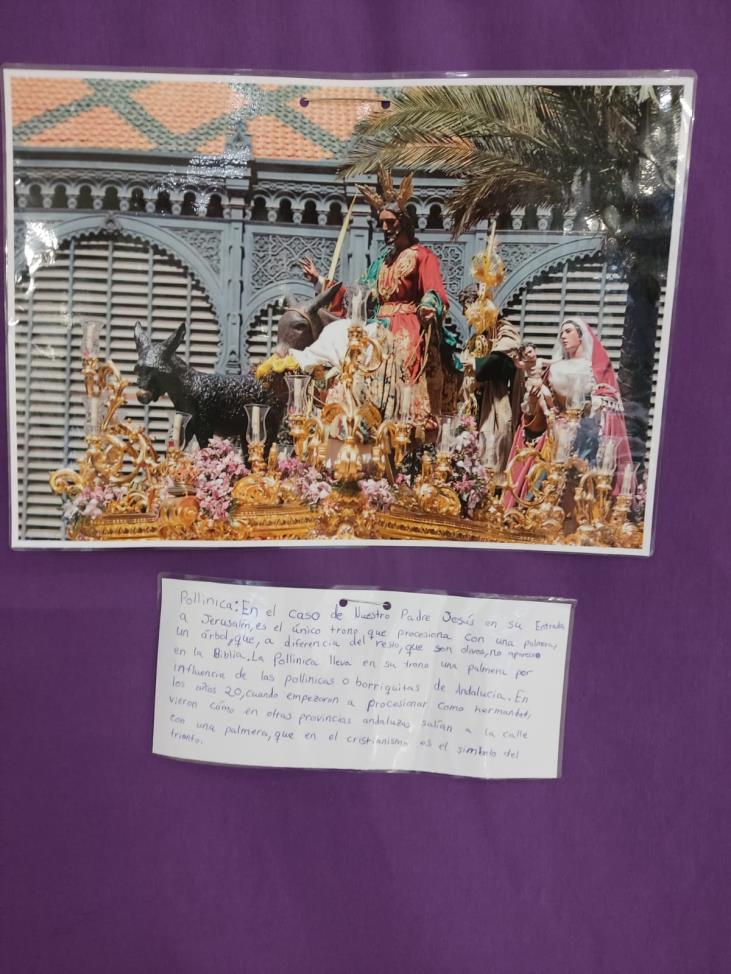 Pollinica: En el caso de Nuestro Padre Jesús en su Entrada
a Jerusalén, es el único trono que procesiona con una palmera,
un árbol, que, a diferencia del resto, que son olivos, no aparece
en la Biblia. La Pollinica lleva en su trono una palmera por
influencia de las pollinicas o borriquitas de Andalucía. En
los años 20, cuando empezaron a procesionar como hermandad,
vieron cómo en otras provincias andaluzas salían a la calle
con una palmera, que en el cristianismo es el símbolo del
triunfo.